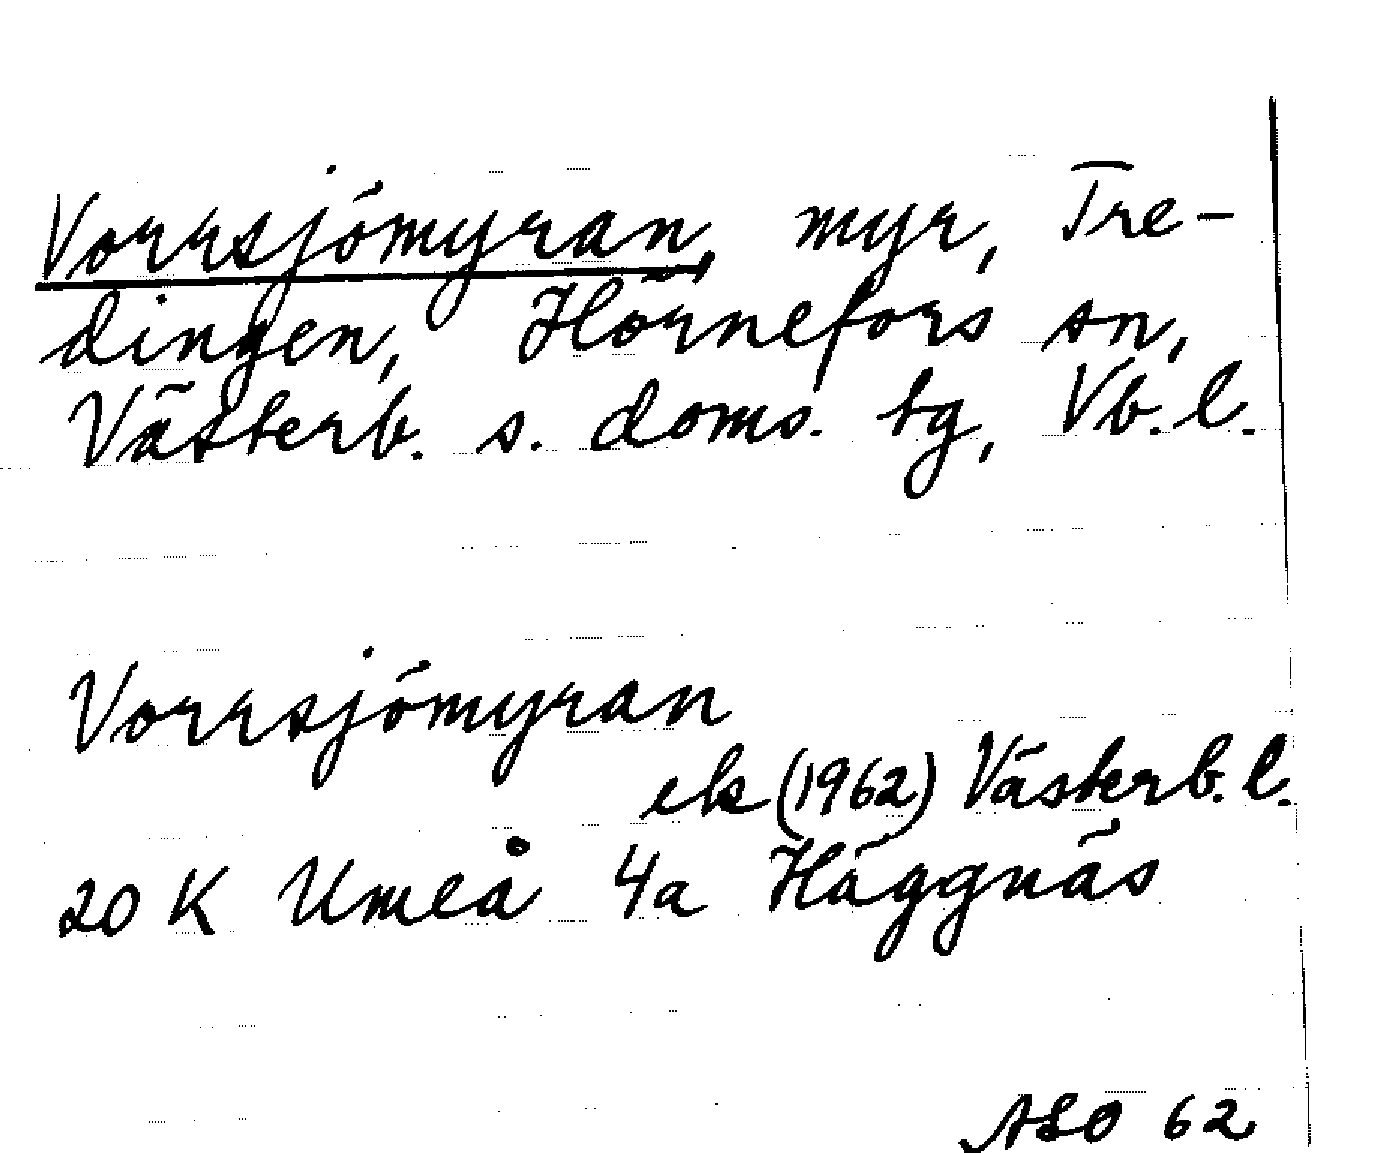 Vorrsjömyran, myr, Tre-
dingen, Hörnefors sn,
Västerb. s. doms. tg, Vb. l.
Vorrsjömyran
ek (1962) Västerb. l.
20 K Umeå 4a Häggnäs
ASO 62